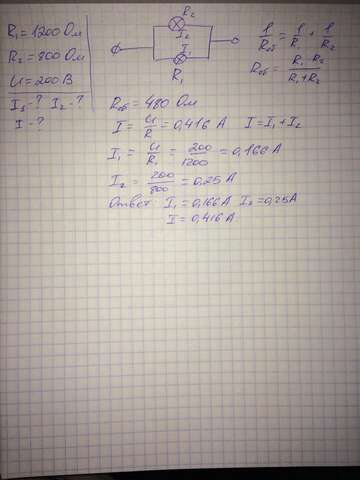 R₁=1200 Ом
R₂=800 Ом
U=200 В
I₁-? I₂-?
I-?
R₂
I₂
I₁
R₁
1/Rоб = 1/R₁ + 1/R₂
Rоб = R₁·R₂/R₁+R₂
Rоб = 480 Ом
I = U/R = 0,416 А I=I₁+I₂
I₁ = U/R₁ = 200/1200 = 0,166 А
I₂ = 200/800 = 0,25 А
Ответ I₁=0,166 А I₂=0,25А
I=0,416 А